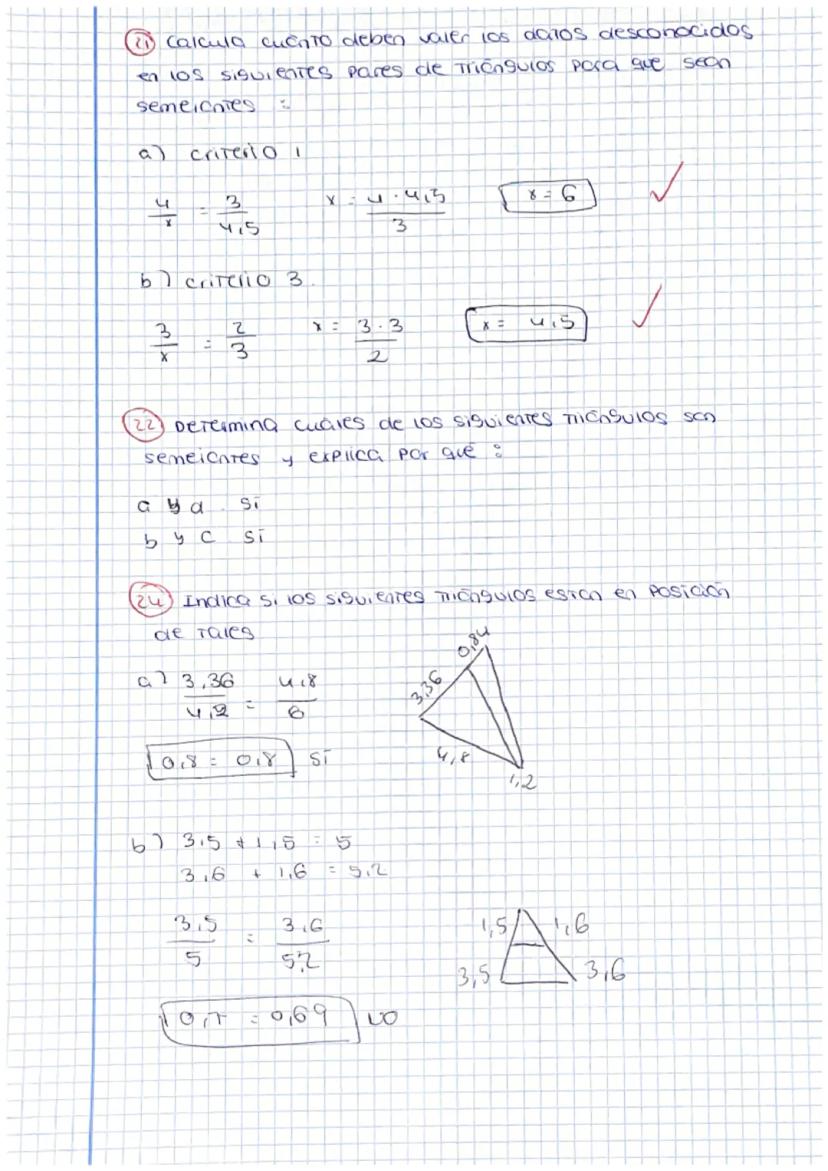 21 Calcula cuánto deben valer los datos desconocidos
en los siguientes pares de triángulos para que sean
semejantes :
a) criterio 1
4/x = 3/4,5 x = 4 · 4,5/3 x = 6 ✓
b) criterio 3
3/x = 2/3 x = 3 · 3/2 x = 4,5 ✓
22 Determina cuáles de los siguientes triángulos son
semejantes y explica por qué :
a y d Sí
b y c Sí
24 Indica si los siguientes triángulos están en posición
de Tales
0,84
a) 3,36/4,2 = 4,8/6
3,36
0,8 = 0,8 Sí
4,8
1,2
b) 3,5 + 1,5 = 5
3,6 + 1,6 = 5,2
3,5/5 = 3,6/5,2
1,5 1,6
3,5 3,6
0,7 = 0,69 NO